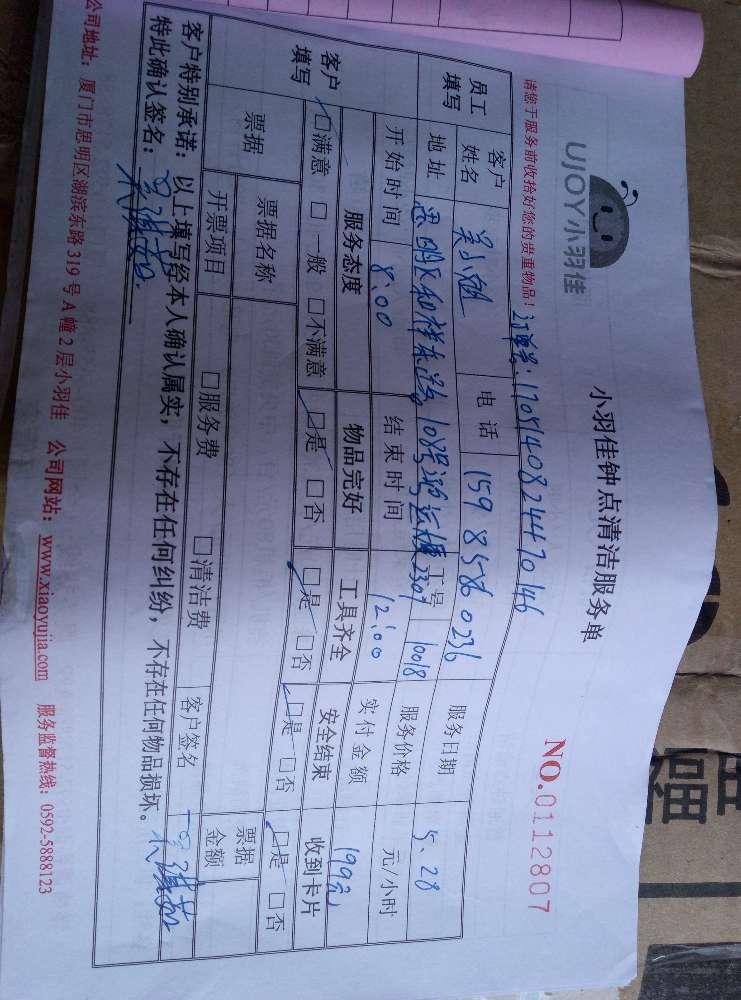 UJOY小羽佳
小羽佳钟点清洁服务单
NO.0112807
请您于服务前收拾好您的贵重物品！ 订单号：17051408244470146
员工填写 客户姓名 电话 159 8586 0236 服务日期 5.28
地址 思明区 工号 10018 服务价格 元/小时
开始时间 8:00 结束时间 12:00 实付金额
客户填写 服务态度 物品完好 工具齐全 安全结束 收到卡片
☑满意 □一般 □不满意 ☑是 □否 ☑是 □否 ☑是 □否 ☑是 □否
票据 票据名称 票据金额
开票项目 □服务费 □清洁费 客户签名
客户特别承诺：以上填写经本人确认属实，不存在任何纠纷，不存在任何物品损坏。
特此确认签名：
公司地址：厦门市思明区湖滨东路319号A幢2层小羽佳 公司网站：www.xiaoyujia.com 服务监督热线：0592-5888123